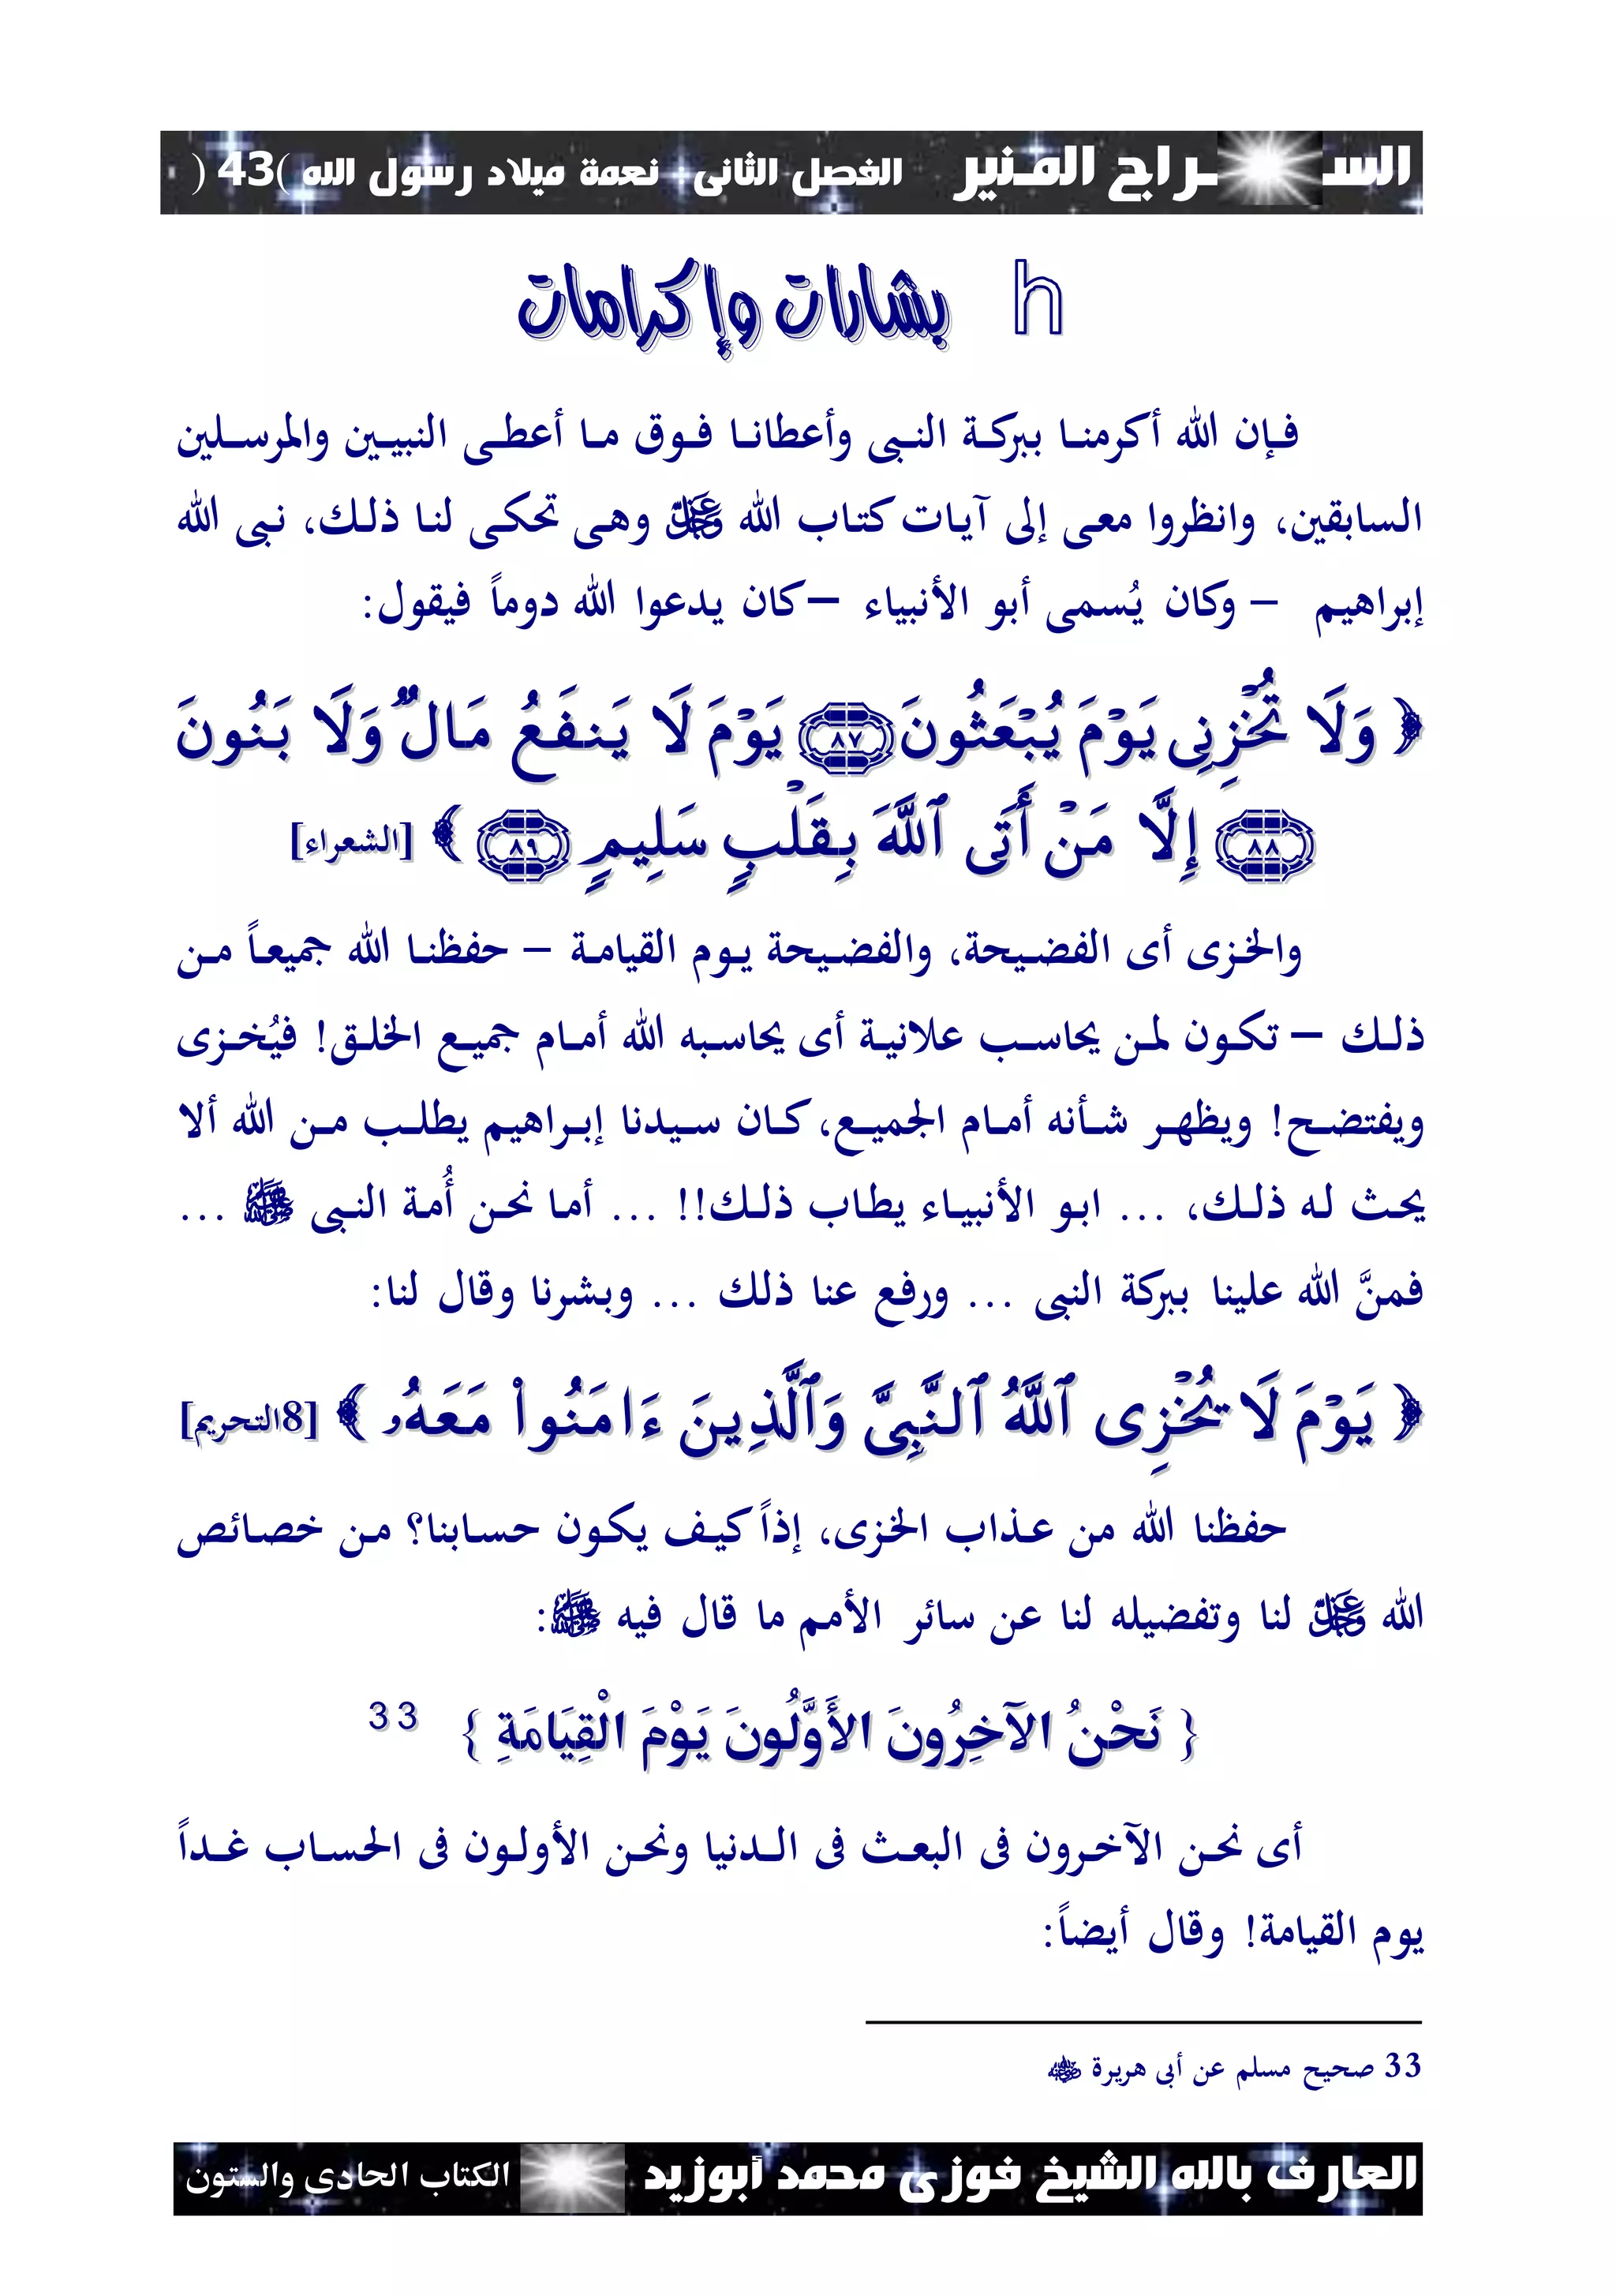 الســراج المـنير الفصل الثانى نعمة ميلاد رسول الله )43(
h بشارات وإكرامات
فـإن الله أكرمنـا ببركـة النـبى وأعطانـا فـوق مـا أعطـى النبيـين والمرسـلين
السابقين، وانظروا معى إلى آيات كتاب الله ﷻ وهى تحكى لنا ذلك، نبى الله
إبراهيم – وكان يُسمى أبو الأنبياء – كان يدعوا الله دوماً فيقول:
﴿ وَلَا تُخْزِنِى يَوْمَ يُبْعَثُونَ ﴿٨٧﴾ يَوْمَ لَا يَنفَعُ مَالٌ وَلَا بَنُونَ
﴿٨٨﴾ إِلَّا مَنْ أَتَى ٱللَّهَ بِقَلْبٍ سَلِيمٍ ﴿٨٩﴾ ﴾ [الشعراء]
والخزى أى الفضيحة، والفضيحة يوم القيامة – حفظنا الله جميعاً من
ذلك – تكون لمن يحاسب علانية أى يحاسبه الله أمام جميع الخلق! فيُخزى
ويفتضح! ويظهر شأنه أمام الجميع، كان سيدنا إبراهيم يطلب من الله ألا
يحث له ذلك، ... ابو الأنبياء يطاب ذلك!! ... أما نحن أُمة النبى ﷺ ...
فمنَّ الله علينا ببركة النبى ... ورفع عنا ذلك ... وبشرنا وقال لنا:
﴿ يَوْمَ لَا يُخْزِى ٱللَّهُ ٱلنَّبِىَّ وَٱلَّذِينَ ءَامَنُوا۟ مَعَهُۥ ﴾ [8التحريم]
حفظنا الله من عذاب الخزى، إذاً كيف يكون حسابنا؟ من خصائص
الله ﷻ لنا وتفضيله لنا عن سائر الأمم ما قال فيه ﷺ:
{ نَحْنُ الآخِرُونَ الأَوَّلُونَ يَوْمَ الْقِيَامَةِ } 33
أى نحن الآخرون فى البعث فى الدنيا ونحن الأولون فى الحساب غداً
يوم القيامة! وقال أيضاً:
33 صحيح مسلم عن أبى هريرة ﵁
العارف بالله الشيخ فوزى محمد أبوزيد الكتاب الحادى والستون